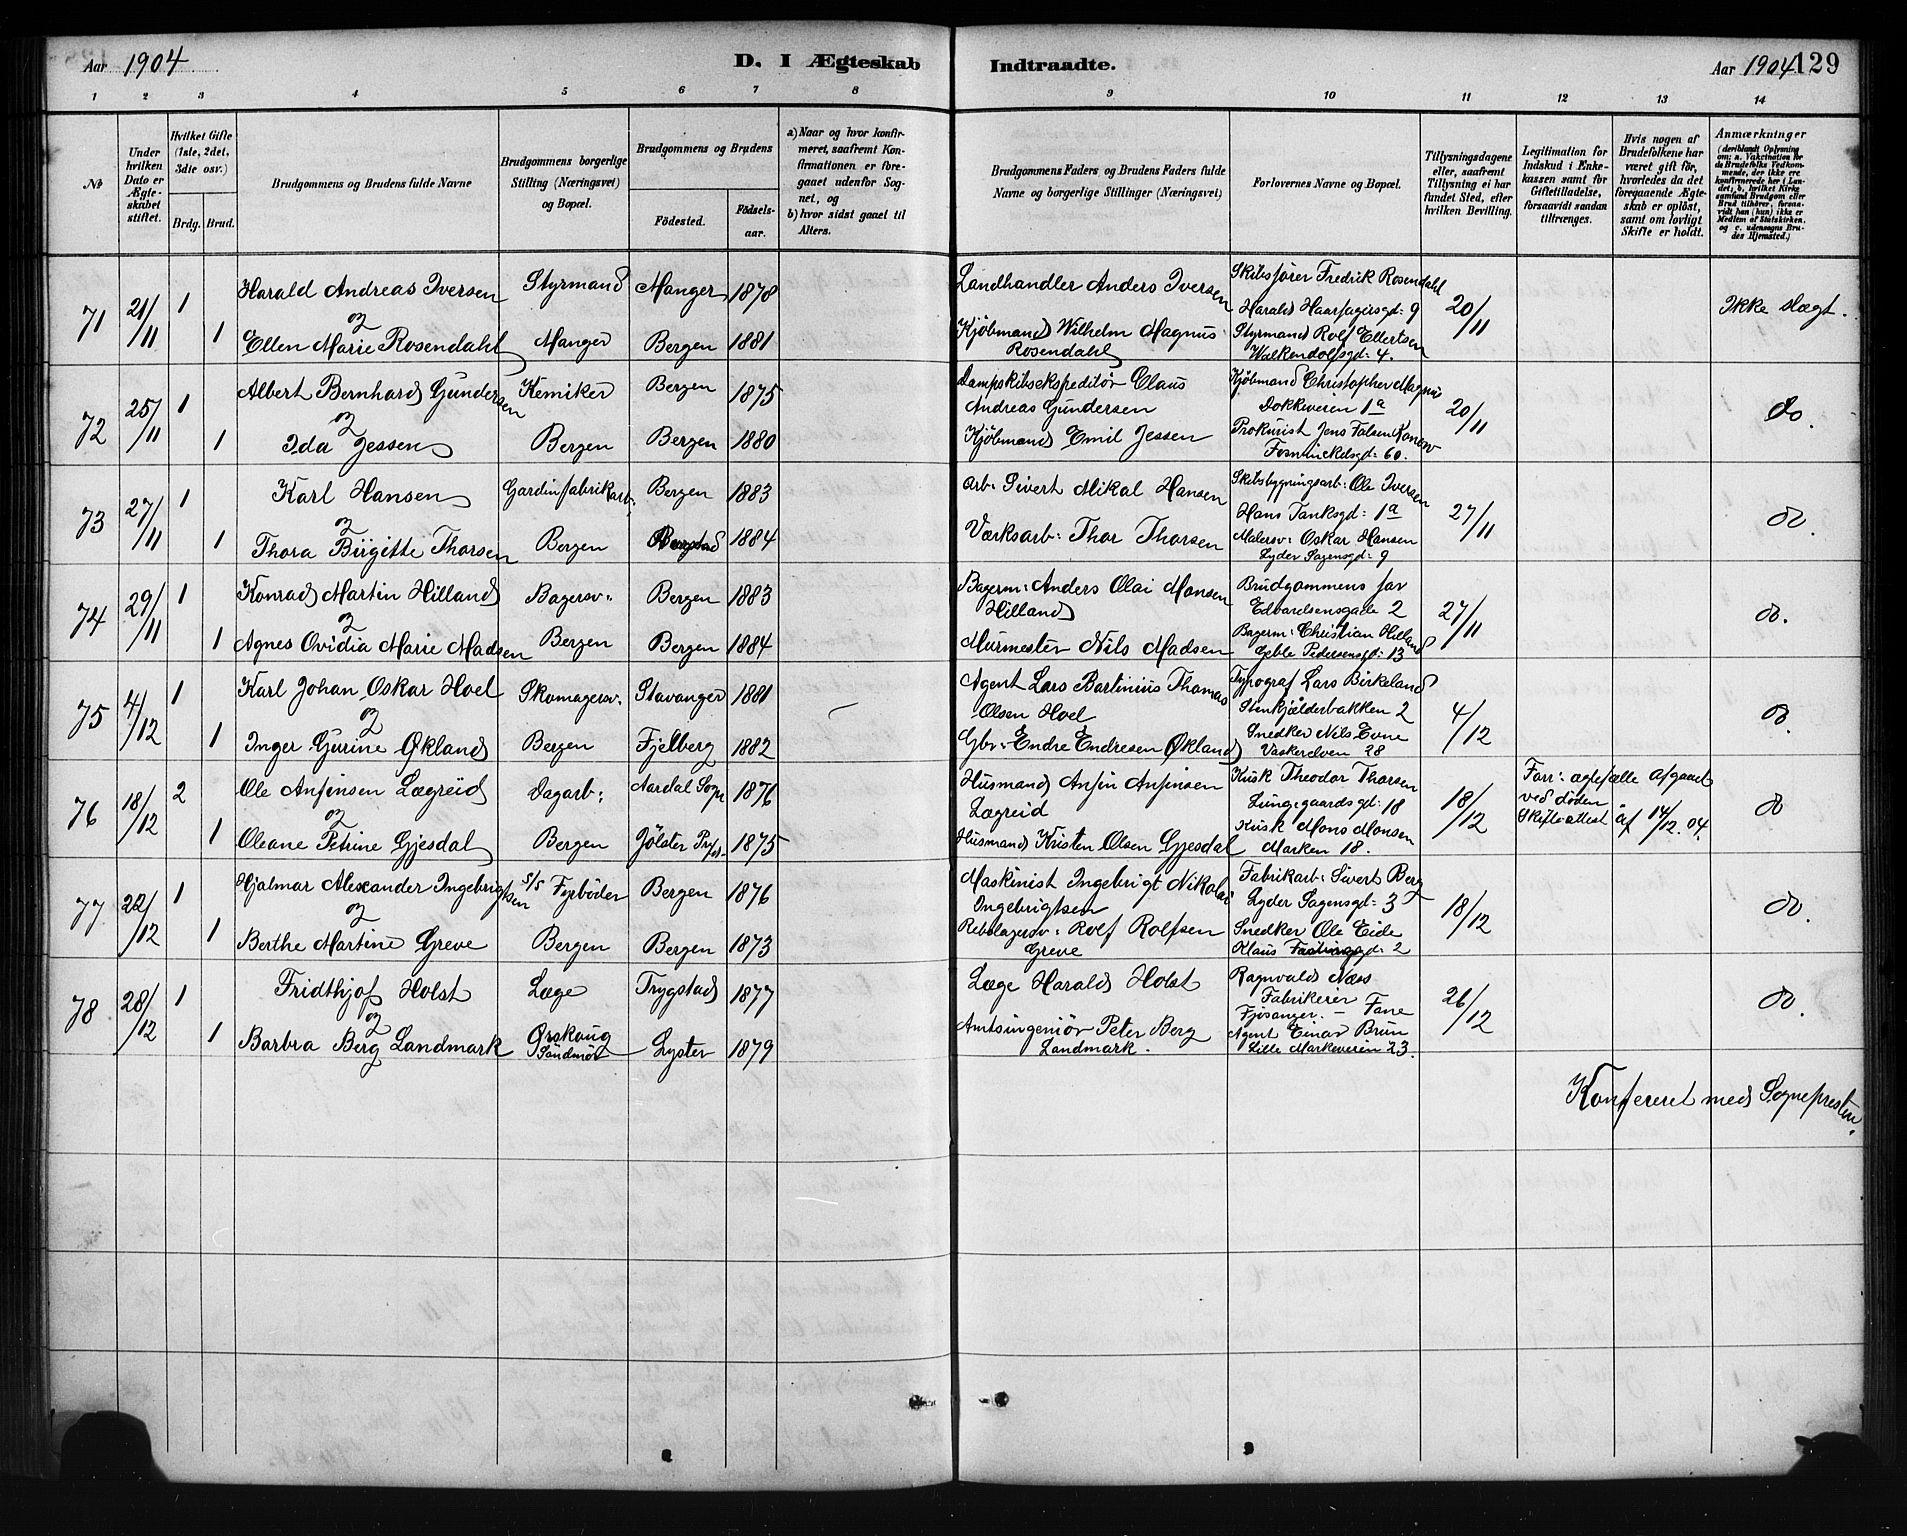 Aar 1904
D. I Ægteskab Indtraadte.
Aar 1904 129
1 2 3 4 5 6 7 8 9 10 11 12 13 14
No
Under hvilken Dato er Ægteskabet stiftet.
Hvilket Gifte (1ste, 2det, 3die osv.)
Brdg. Brud.
Brudgommens og Brudens fulde Navne
Brudgommens borgerlige Stilling (Næringsvei) og Bopæl.
Brudgommens og Brudens
Fødested. Fødsels-aar.
a) Naar og hvor konfirmeret, saafremt Konfirmationen er foregaaet udenfor Sognet, og
b) hvor sidst gaaet til Alters.
Brudgommens Faders og Brudens Faders fulde Navne og borgerlige Stillinger (Næringsvei)
Forlovernes Navne og Bopæl.
Tillysningsdagene eller, saafremt Tillysning ei har fundet Sted, efter hvilken Bevilling.
Legitimation for Indskud i Enkekassen samt for Giftetilladelse, forsaavidt saadan tiltrænges.
Hvis nogen af Brudefolkene har været gift før, hvorledes da det foregaaende Ægteskab er opløst, samt om lovligt Skifte er holdt.
Anmærkninger (deriblandt Oplysning om: a. Vakcination for de Brudefolks Vedkommende, der ikke ere konfirmerede her i Landet; b. hvilket Kirkesamfund Brudgom eller Brud tilhører, forsaavidt han (hun) ikke er Medlem af Statskirken, og c. udensogns Brudes Hjemsted.)
71 21/11 1 Harald Andreas Iversen Styrmand Manger 1878 Landhandler Anders Iversen Skibsfører Fredrik Rosendahl
Harald Haarfagersgd: 9 20/11 Ikke slægt.
og
1 Ellen Marie Rosendahl Manger Bergen 1881 Kjøbmand Wilhelm Magnus Styrmand Rolf Ellertsen
Rosendahl Walkendolfsgd: 4.
72 25/11 1 Albert Bernhard Gundersen Kemiker Bergen 1875 Dampskibsekspeditør Claus Kjøbmand Christopher Magnus
Andreas Gundersen Dokkeveien 1a 20/11 do.
og
1 Ida Jessen Bergen Bergen 1880 Kjøbmand Emil Jessen Prokurist Jens Falsen Kanow
Fosninckelsgd: 60.
73 27/11 1 Karl Hansen Gardinfabrikarb: Bergen 1883 arb: Sivert Mikal Hansen Skibsbygningsarb: Ole Iversen
Hans Tanksgd: 1a 27/11 do.
og
1 Thora Birgitte Thorsen Bergen 1884 Værksarb: Thor Thorsen Malersv: Oskar Hansen
Lyder Sagensgd: 9
74 29/11 1 Konrad Martin Hilland Bagersv: Bergen 1883 Bagerm: Anders Olai Monsen Brudgommens far
Hilland Edvardsensgade 2 27/11 do.
og
1 Agnes Ovidia Marie Madsen Bergen Bergen 1884 Murmester Nils Madsen Bagerm: Christian Hilland
Geble Pedersensgd: 13
75 4/12 1 Karl Johan Oskar Hoel Skomagersv. Stavanger 1881 Agent Lars Bartinius Thomas Typograf Lars Birkeland
Olsen Hoel Stenkjælderbakken 2 4/12 do.
og
1 Inger Gurine Økland Bergen Fjelberg 1882 Gbr: Endre Endresen Økland Snedker Nils Evne
Vaskerelven 28
76 18/12 2 Ole Anfinsen Lægreid Dagarb: Aardal Sogn 1876 Husmand Anfin Anfinsen Kusk Theodor Thorsen
Lægreid Lungegaardsgd: 18 18/12 do
Forr: ægtefælle afgaaet
ved døden
Skifteattest af 14/12. 04.
og
1 Oleane Petrine Gjesdal Bergen Jölster Prgj. 1875 Husmand Kristen Olsen Gjesdal Kusk Mons Monsen
Marken 18.
77 22/12 1 Hjalmar Alexander Ingebrigtsen S/S Fyrbøder Bergen 1876 Maskinist Ingebrigt Nikolai Fabrikarb: Sivert Berg
Ingebrigtsen Lyder Sagensgd: 3 18/12 do.
og
1 Berthe Martine Greve Bergen Bergen 1873 Rebslagersv: Rolf Rolfsen Snedker Ole Eide
Greve Klaus 2
78 28/12 1 Fridthjof Holst Læge Trygstad 1877 Læge Harald Holst Ragnvald Næss
Fabrikeier
Fjøsanger. - Fane 26/12 do.
og
1 Barbra Berg Landmark Ørskoug Lyster 1879 Amtsingeniør Peter Berg Agent Einar Brun
Søndmør Landmark. Lille Markeveien 23.
Konfereret med Sognepresten.